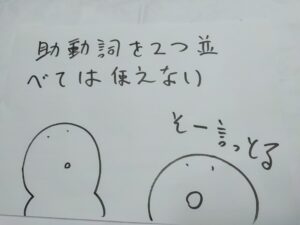 助動詞を2つ並
べては使えない
そー言っとる